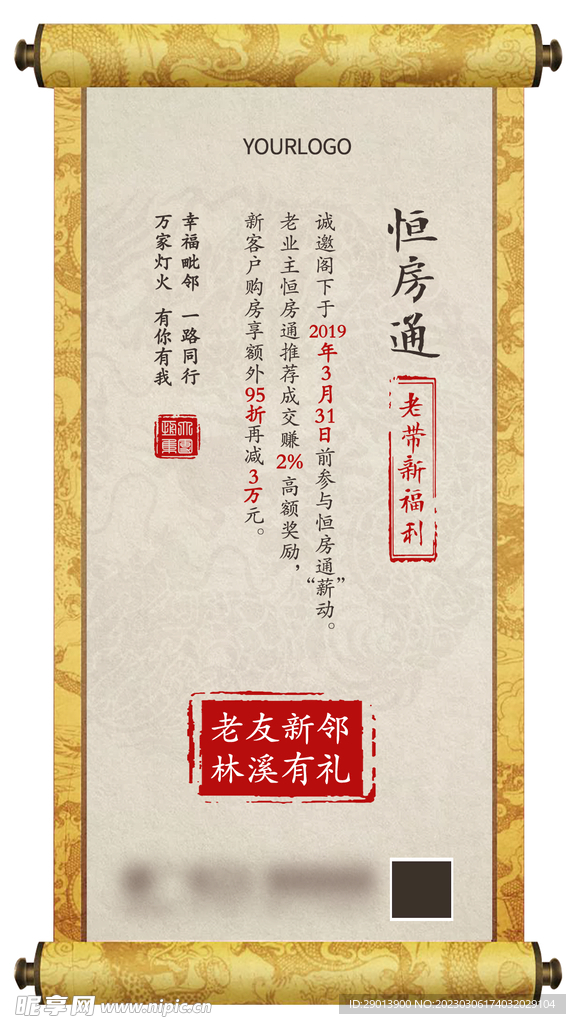 YOURLOGO
恒房通
老带新福利
诚邀阁下于2019年3月31日前参与恒房通“薪动”。
老业主恒房通推荐成交赚2%高额奖励，
新客户购房享额外95折再减3万元。
幸福毗邻 一路同行
万家灯火 有你有我
老友新邻
林溪有礼
昵享网 www.nipic.cn
ID:29013900 NO:20230306174032029104